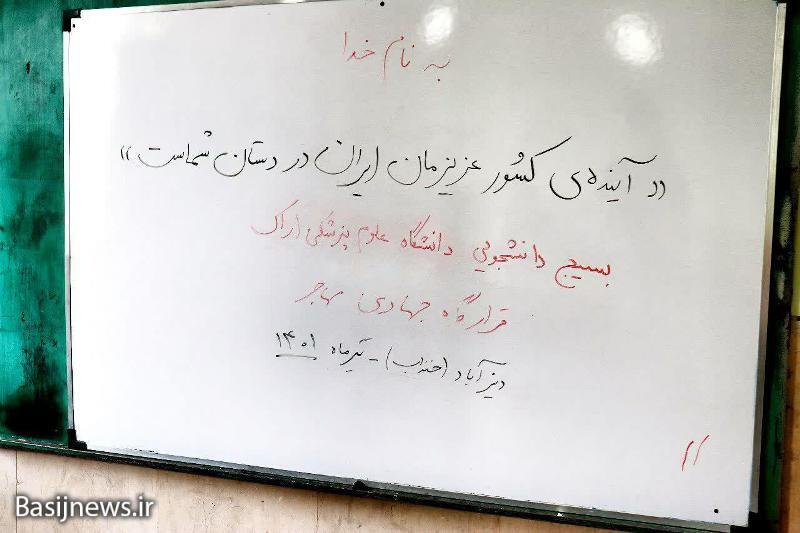 به نام خدا
«آینده‌ی کشور عزیزمان ایران در دستان شماست»
بسیج دانشجویی دانشگاه علوم پزشکی اراک
قرارگاه جهادی مهاجر
دیزآباد (خنداب) - تیرماه ۱۴۰۱
//
Basijnews.ir